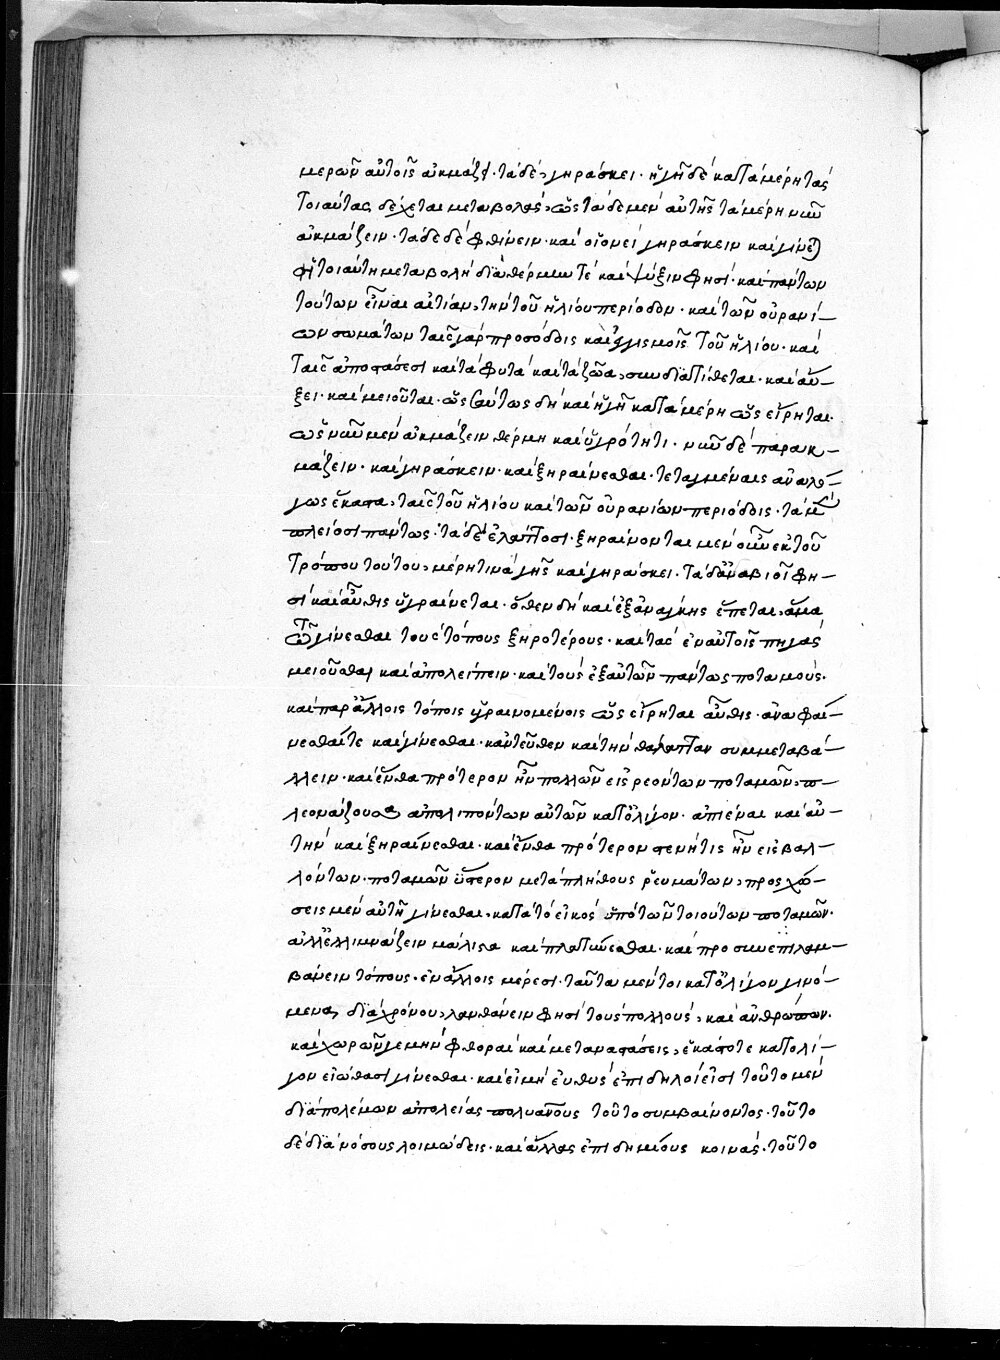 μερῶν αὐτοῖς ἀκμάζει· τὰ δὲ, γηράσκει· ἡ γῆ δὲ κατὰ μέρη τὰς
τοιαύτας δέχεται μεταβολάς, ὡς τὰ δὲ μὲν αὐτῆς τὰ μέρη νῦν
ἀκμάζειν· τὰ δὲ δὲ φθίνειν· καὶ οἱονεὶ γηράσκειν καὶ γίνεται
φῆ τοιαύτη μεταβολὴ διὰ θέρμην τὲ καὶ ψύξιν φησὶ· καὶ πάντων
τούτων εἶναι αἰτίαν, τὴν τοῦ ἡλίου περίοδον· καὶ τῶν οὐρανί-
ων σωμάτων ταῖς γὰρ προσόδοις καὶ ἐγγισμοῖς τοῦ ἡλίου· καὶ
ταῖς ἀποστάσεσι καὶ τὰ φυτὰ καὶ τὰ ζῶα, συνδιατίθεται· καὶ αὔ-
ξει· καὶ μειοῦται· ὡσαύτως δὴ καὶ ἡ γῆ κατὰ μέρη ὡς εἴρηται·
ὡς νῦν μὲν ἀκμάζειν θέρμη καὶ ὑγρότητι· νῦν δὲ παρακ-
μάζειν· καὶ γηράσκειν· καὶ ξηραίνεσθαι· τεταγμέναις ἀναλό-
γως ἕκαστα, ταῖς τοῦ ἡλίου καὶ τῶν οὐρανίων περιόδοις· τὰ μὲν
πλείοσι πάντως· τὰ δὲ ἐλάττοσι· ξηραίνονται μὲν οὖν ἐκ τοῦ
τρόπου τούτου, μέρη τινὰ γῆς καὶ γηράσκει· τὰ δ' ἀναβιοῖ φη-
σὶ καὶ αὖθις ὑγραίνεται· ὅθεν δὴ καὶ ἐξ ἀνάγκης ἕπεται, ἅμα
τῶ γίνεσθαι τοὺς τόπους ξηροτέρους· καὶ τὰς ἐν αὐτοῖς πηγὰς
μειοῦσθαι καὶ ἀπολείπειν· καὶ τοὺς ἐξ αὐτῶν πάντως ποταμούς·
καὶ παρ' ἄλλοις τόποις ὑγραινομένοις ὡς εἴρηται αὖθις· ἀναφαί-
νεσθαί τε καὶ γίνεσθαι· κἀντεῦθεν καὶ τὴν θάλατταν συμμεταβά-
λλειν· καὶ ἔνθα πρότερον ἦν πολλῶν εἰσρεόντων ποταμῶν, π-
λεονάζουσα ἀπολιπόντων αὐτῶν κατ' ὀλίγον· ἀπιέναι καὶ αὐ-
τὴν καὶ ξηραίνεσθαι· καὶ ἔνθα πρότερον στενῆτις ἦν εἰσβαλ-
λόντων· ποταμῶν ὕστερον μετὰ πλήθους ῥευμάτων, προσχώ-
σεις μὲν αὐτῆ γίνεσθαι, κατὰ τὸ εἰκὸς ὑπὸ τῶν τοιούτων ποταμῶν·
ἀλλ' ἐλλιμνάζειν μάλιστα καὶ πλατύνεσθαι· καὶ προσυνεπιλαμ-
βάνειν τόπους· ἐν ἄλλοις μέρεσι· ταῦτα μέντοι κατ' ὀλίγον γινό-
μενα, διὰ χρόνου, λανθάνειν φησὶ τοὺς πολλοὺς, καὶ ἀνθρώπων·
καὶ χωρῶν γε μὴν φθοραὶ καὶ μεταναστάσεις, ἑκάστοτε κατ' ὀλί-
γον εἰώθασι γίνεσθαι· καὶ εἰ μὴ εὐθὺς ἐπίδηλοί εἰσι τοῦτο μὲν
διὰ πολέμων ἀπολείας πολυάνους τοῦτο συμβαίνοντος· τοῦτο
δὲ διὰ νόσους λοιμώδεις· καὶ ἄλλας ἐπιδημίους κοινάς· τοῦτο